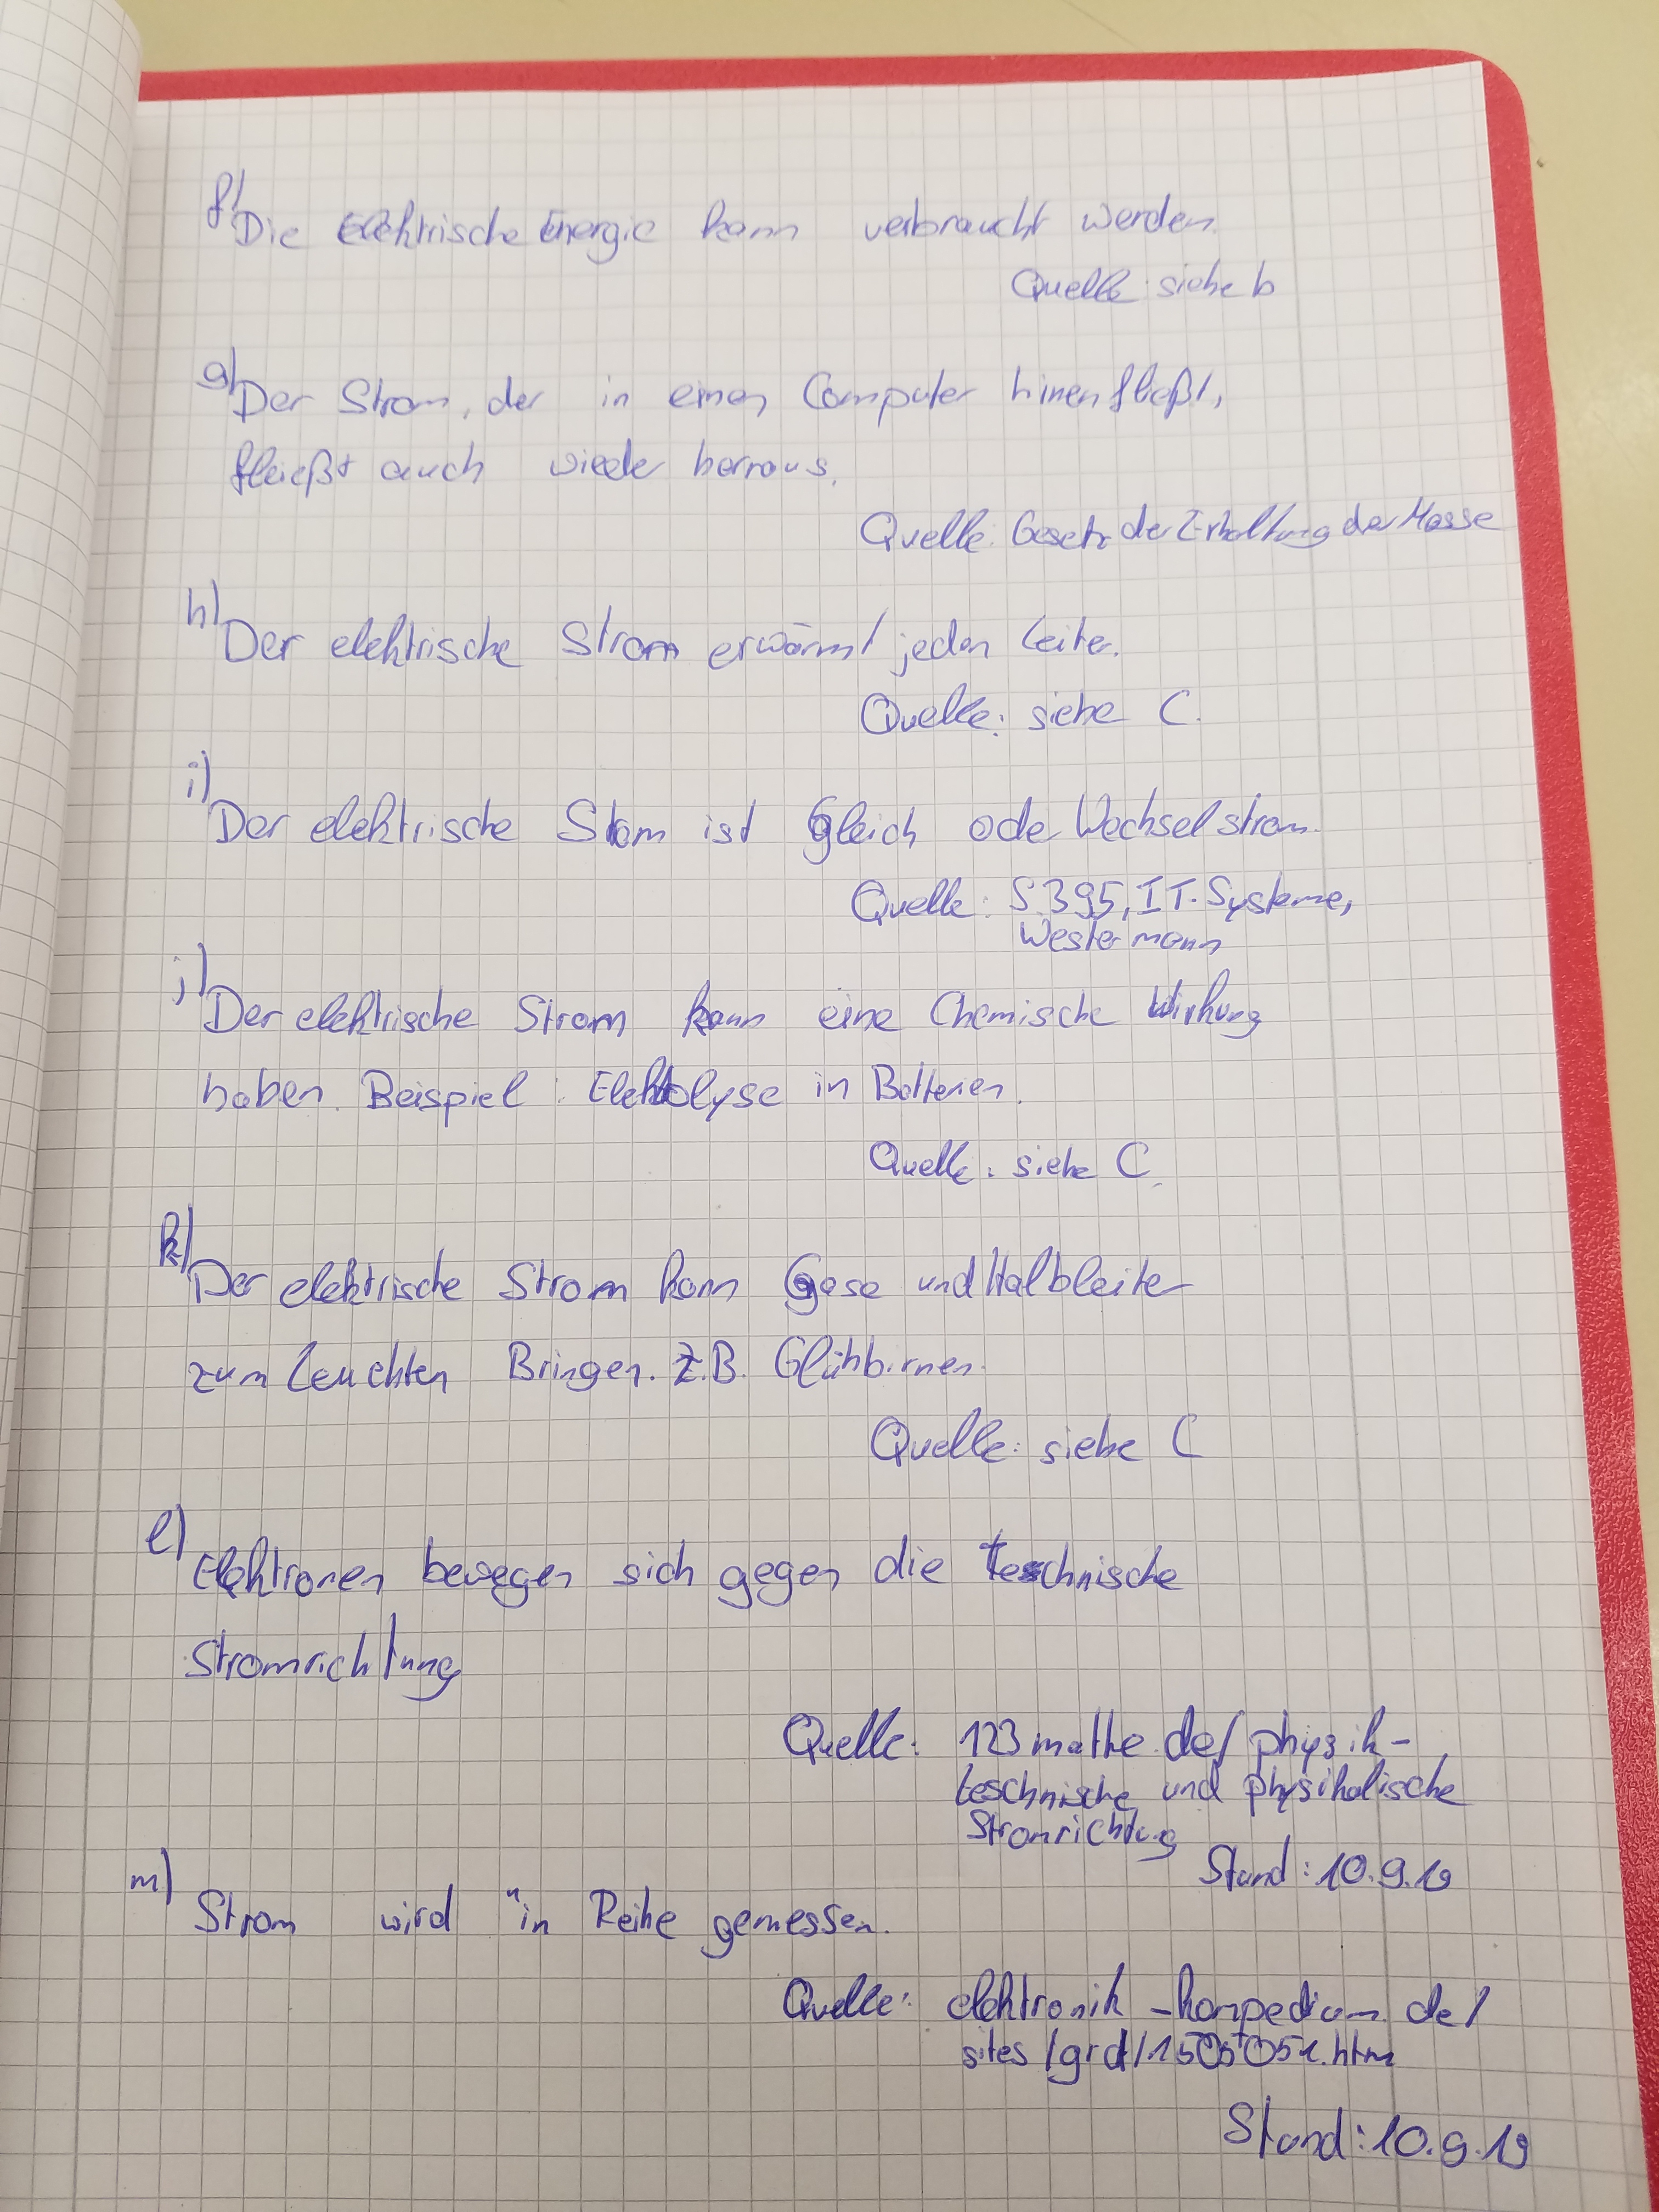 f) Die Elektrische Energie kann verbraucht werden.
Quelle: siehe b
g) Der Strom, der in einen Computer hinenfließt,
fleißt auch wieder herraus.
Quelle: Gesetz der Erhaltung der Masse
h) Der elektrische Strom erwärmt jeden Leiter.
Quelle: siehe C.
i) Der elektrische Strom ist Gleich oder Wechselstrom.
Quelle: S.395, IT-Systeme,
Westermann
j) Der elektrische Strom kann eine Chemische Wirkung
haben. Beispiel: Elektolyse in Batterien.
Quelle: siehe C.
k) Der elektrische Strom kann Gase und Halbleiter
zum Leuchten Bringen. Z.B. Glühbirnen.
Quelle: siehe C
l) Elektronen bewegen sich gegen die teschnische
Stromrichtung
Quelle: 123mathe.de/physik-
teschnische und physikalische
Stromrichtung
Stand: 10.9.19
m) Strom wird "in Reihe gemessen.
Quelle: elektronik-kompedium.de/
sites/grd/1505051.htm
Stand: 10.9.19